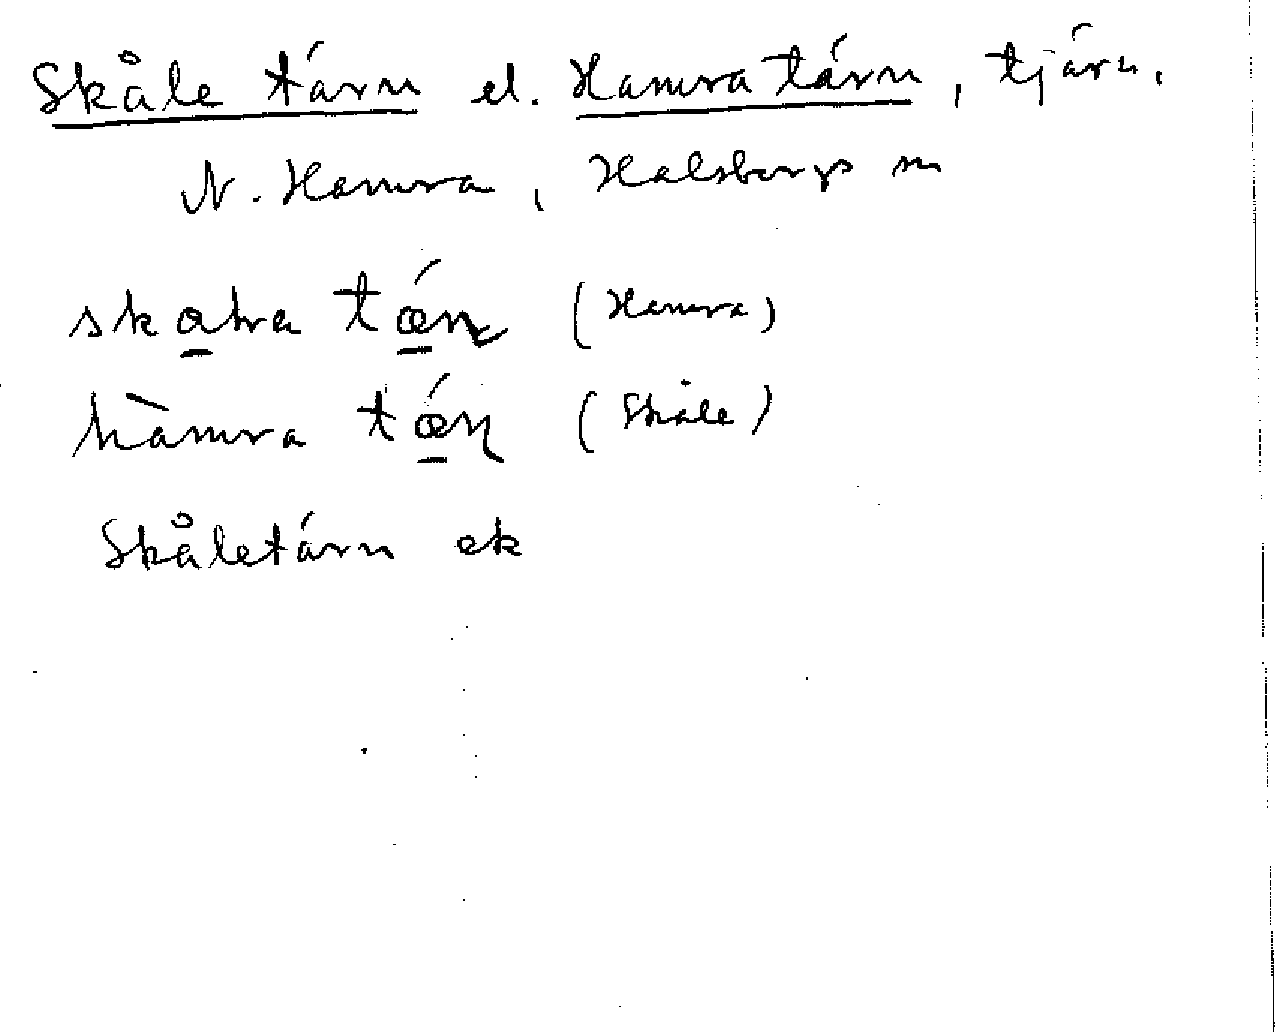 Skåle tárn el. Hamra tárn, tjárn,
N. Hamra, Halsbergs sn
tǽn (Hamra)
hàmra tǽn (Skåle)
Skåletárn ek